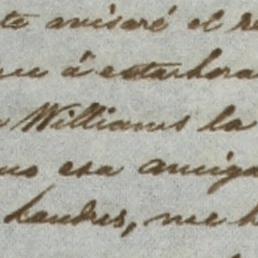 te avisaré el re
ue á esta hora
Williams la
no esa amiga
Londres, me h